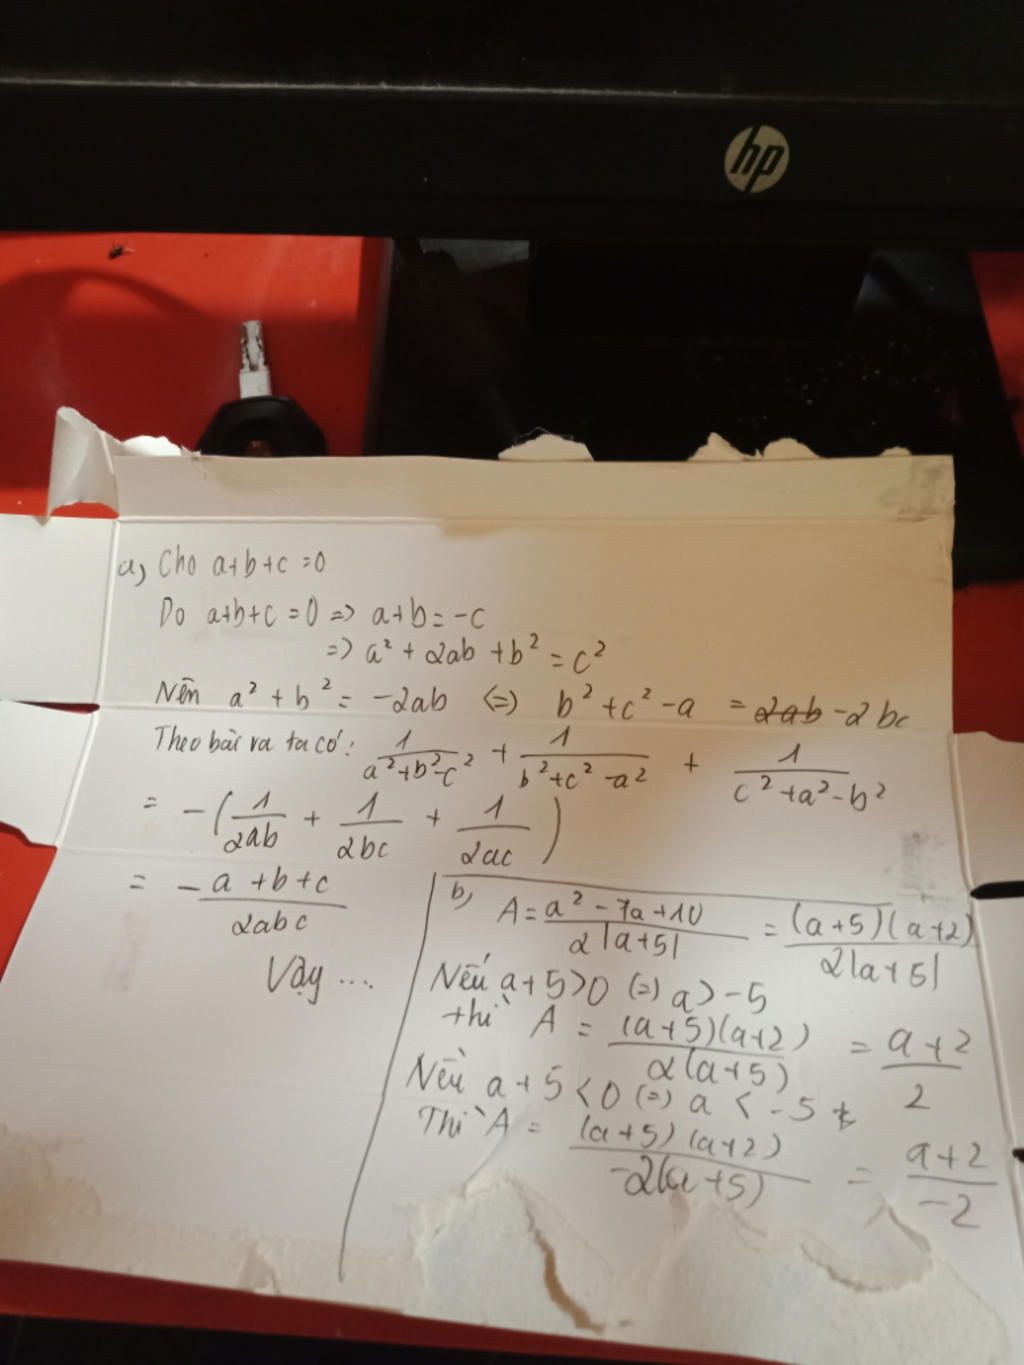 hp
a, Cho a+b+c =0
Do a+b+c = 0 => a+b = -c
=> a² + 2ab + b² = c²
Nên a² + b² = -2ab <=> b² + c² - a = -2bc
Theo bài ra ta có: 1/(a²+b²-c²) + 1/(b²+c²-a²) + 1/(c²+a²-b²)
= -(1/2ab + 1/2bc + 1/2ac)
= - (a+b+c)/2abc
Vậy ....
b, A = (a² - 7a+10)/2|a+5| = (a+5)(a+2)/2|a+5|
Nếu a+5>0 (=) a> -5
thì A = (a+5)(a+2)/2(a+5) = (a+2)/2
Nều a+5 <0 (=) a < -5
Thì A = (a+5)(a+2)/-2(a+5) = (a+2)/-2